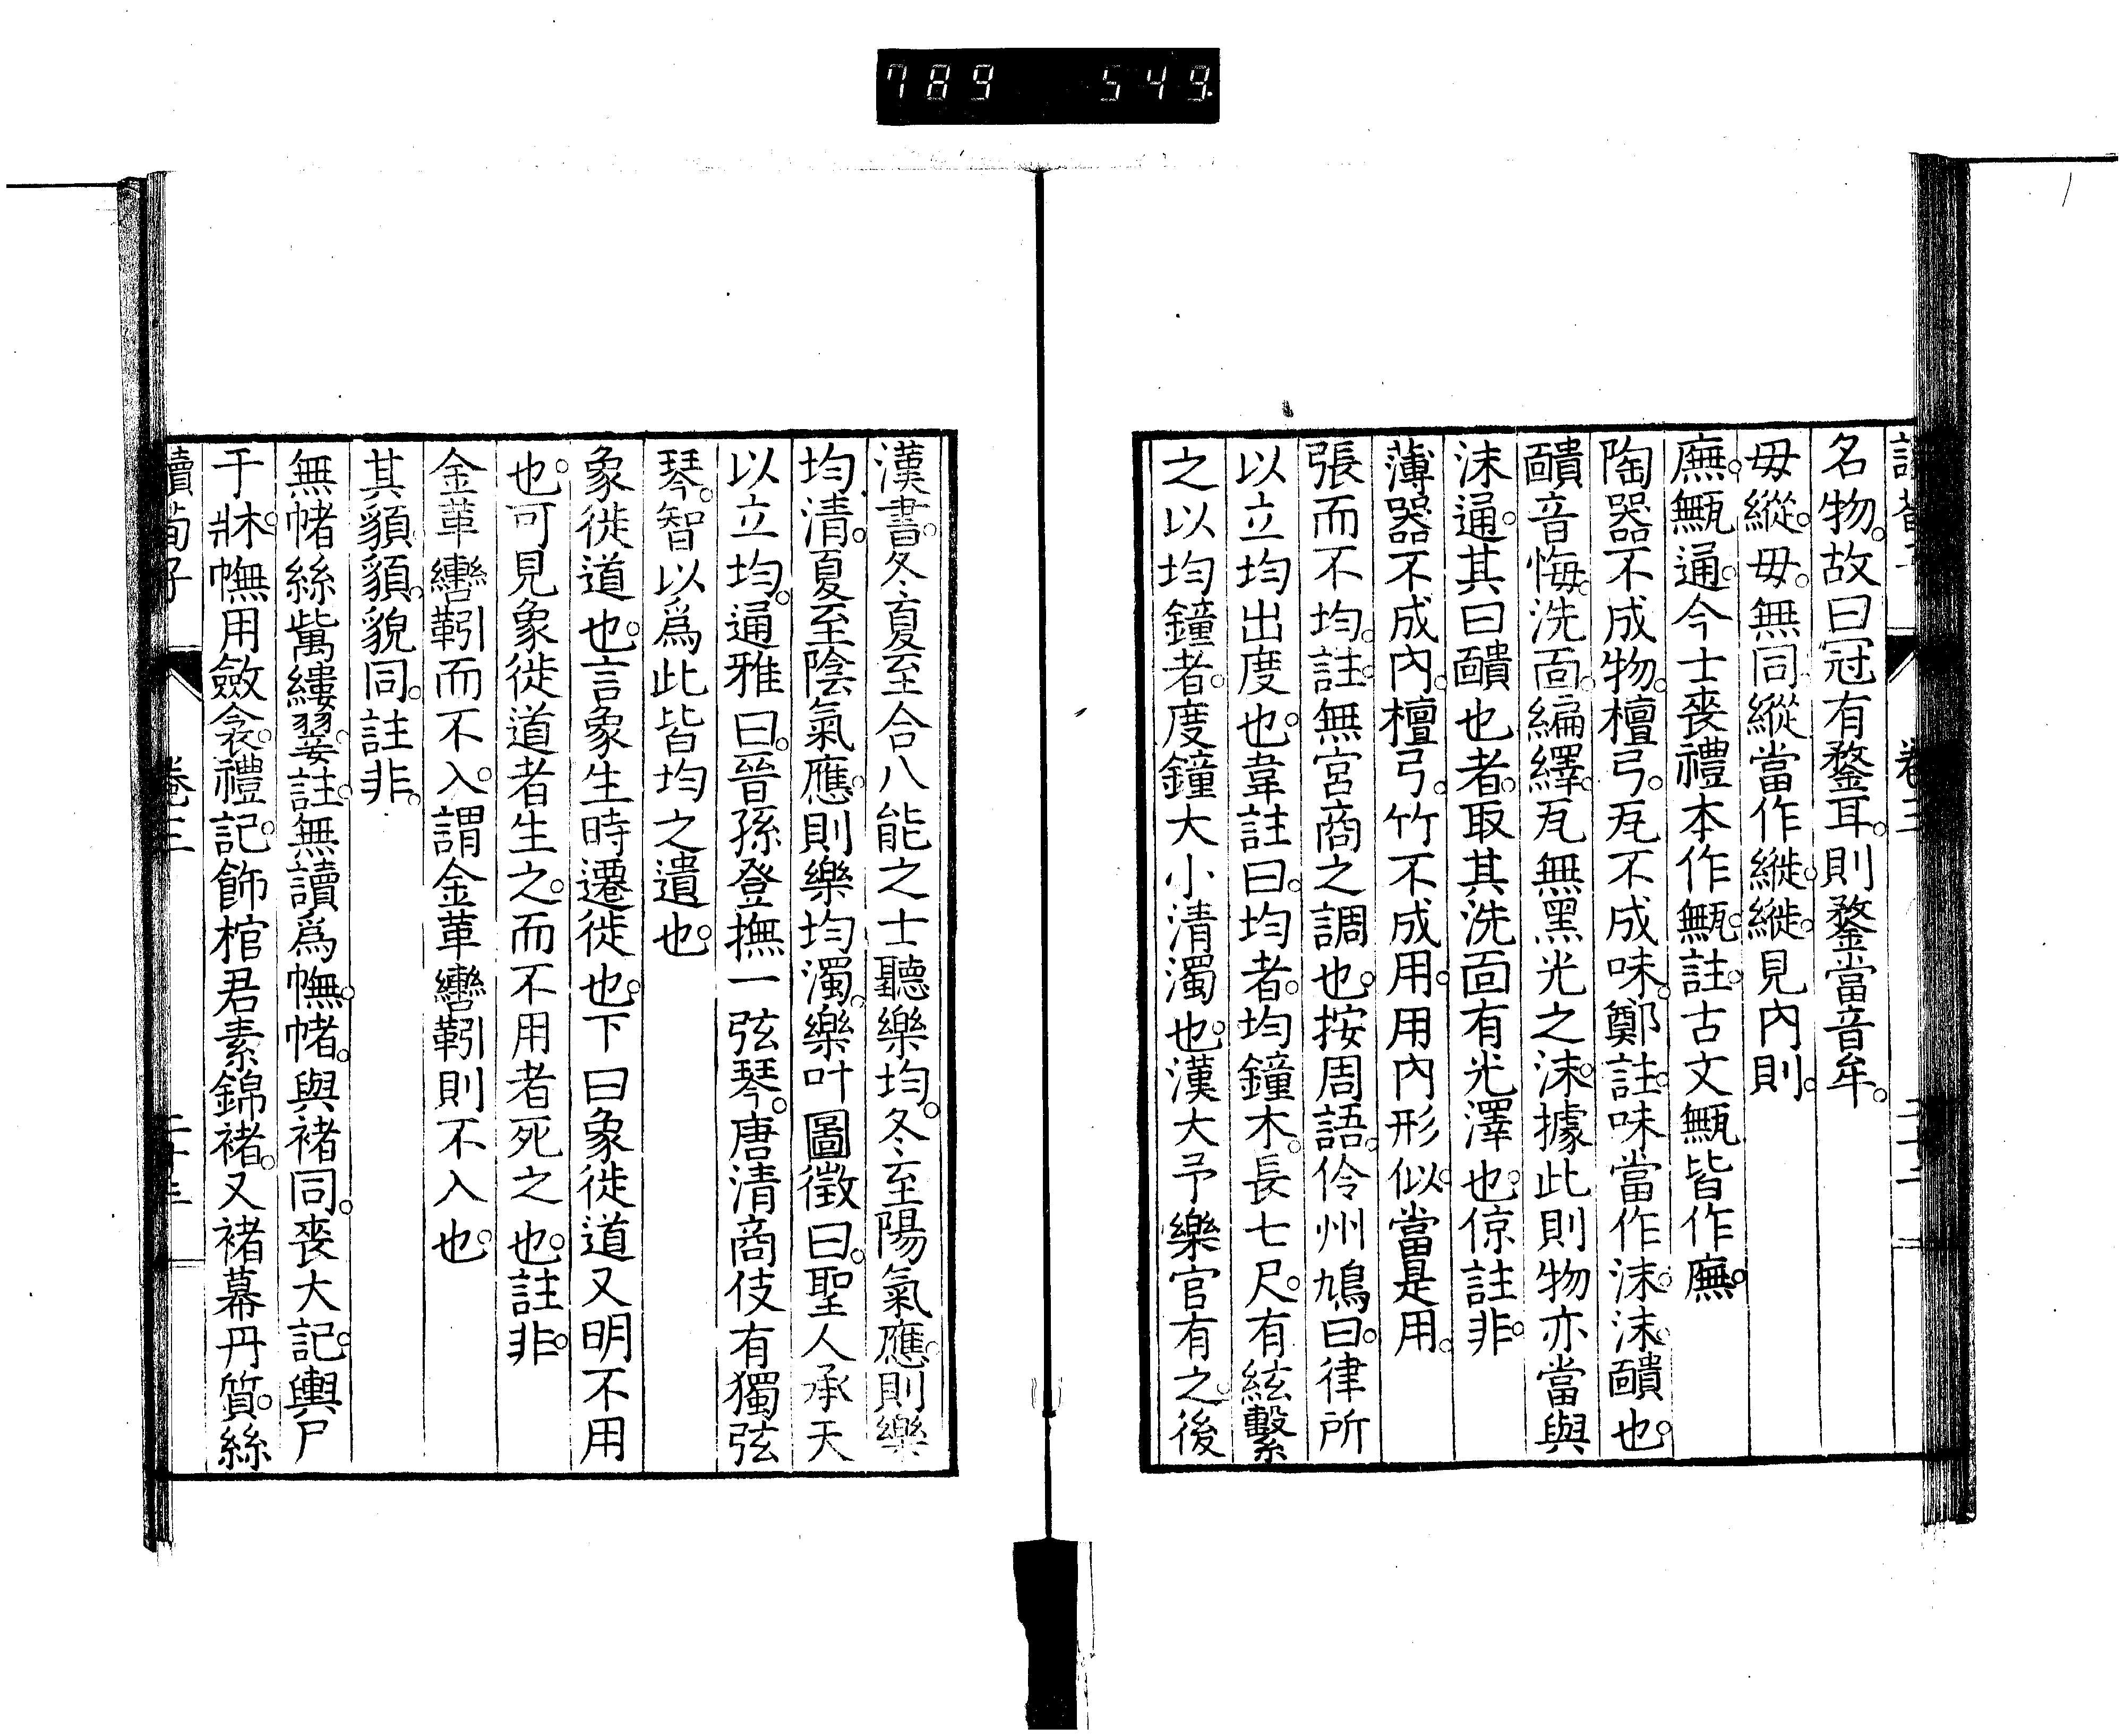 789 549
名物。故曰冠有鍪耳。則鍪當音牟。
毋縰。毋。無同縱當作縰。縰。見內則。
廡。甒通。今士喪禮本作甒。註。古文甒皆作廡。
陶器不成物。檀弓。瓦不成味。鄭註。味當作沬。沬。靧也。
靧音悔。洗靣。編繹。瓦無黑光之沬。據此則物亦當與
沬通。其曰靧也者。取其洗靣有光澤也。倞註非。
薄器不成內。檀弓。竹不成用。用內形似。當是用。
張而不均。註。無宮商之調也。按周語。伶州鳩曰。律所
以立均出度也。韋註曰。均者。均鐘木。長七尺。有絃繫
之以均鐘者。度鐘大小清濁也。漢大予樂官有之。後
漢書。冬夏至合八能之士聽樂均。冬至陽氣應。則樂
均清。夏至陰氣應。則樂均濁。樂叶圖徵曰。聖人承天
以立均。通雅曰。晉孫登撫一弦琴。唐清商伎有獨弦
琴。智以爲此皆均之遺也。
象徙道也。言象生時遷徙也。下曰象徙道又明不用
也。可見象徙道者生之。而不用者死之也。註非。
金革轡靷而不入。謂金革轡靷則不入也。
其䫉䫉。貌同。註非。
無帾絲歶縷翣。註。無讀爲幠。帾。與褚同。喪大記。輿尸
于牀。幠用斂衾。禮記。飾棺君素錦褚。又褚幕丹質。絲
讀荀子 卷三